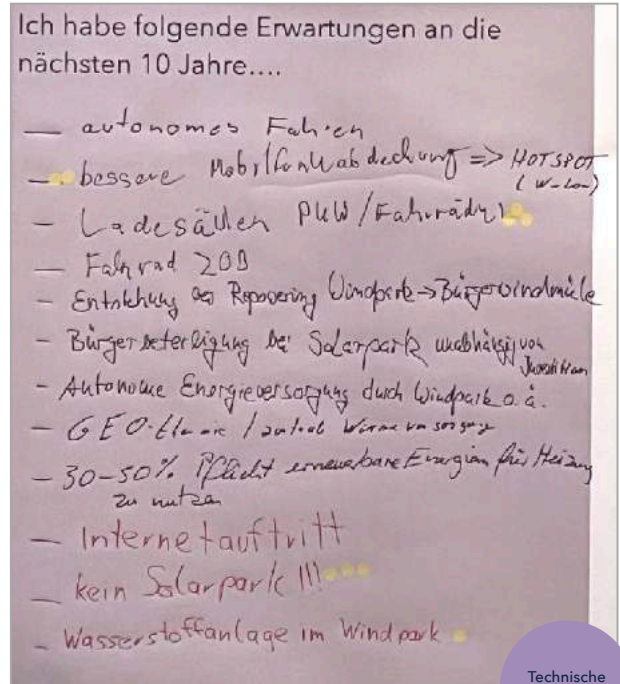 Ich habe folgende Erwartungen an die
nächsten 10 Jahre....
— autonomes Fahren
— bessere Mobilfunkabdeckung => HOTSPOT
(W-Lan)
- Ladesäulen PKW/Fahrräder
— Fahrrad
- Entstehung Repowering Windpark → Bürgerwindmühle
- Bürgerbeteiligung bei Solarpark unabhängig von
- Autonome Energieversorgung durch Windpark o.ä.
- GEO / zentral
- 30-50% Pflicht erneuerbare Energien für Heizung
zu nutzen
— Internetauftritt
— kein Solarpark !!!
- Wasserstoffanlage im Windpark
Technische